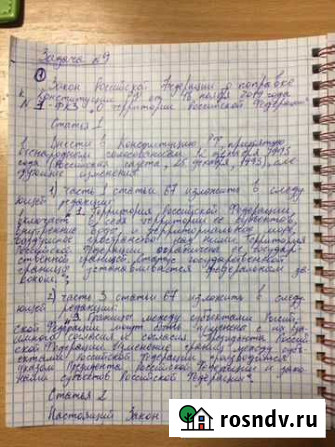 Задача №9
①
Закон Российской Федерации о поправке
к Конституции РФ от 16 ноября 2017 года
N -ФКЗ "О территории Российской Федерации"
Статья 1
Внести в Конституцию РФ, принятую
всенародным голосованием 12 декабря 1993
года (Российская газета, 25 декабря, 1993), сле-
дующие изменения:
1) часть 1 статьи 67 изложить в следу-
ющей редакции:
"1. Территория Российской Федерации
включает в себя территории ее субъектов,
внутренние воды и территориальное море,
воздушное пространство над ними. Территория
Российской Федерации ограничена государ-
ственной границей. Статус государственной
границы устанавливается федеральным за-
коном.";
2) часть 3 статьи 67 изложить в след-
ющей редакции:
"3. Границы между субъектами Россий-
ской Федерации могут быть изменены с их вза-
имного согласия и согласия Президента Россий-
ской Федерации. Изменение границ между субъ-
ектами Российской Федерации производится
указом Президента Российской Федерации и зако-
нами субъектов Российской Федерации."
Статья 2
Настоящий Закон
rosndv.ru